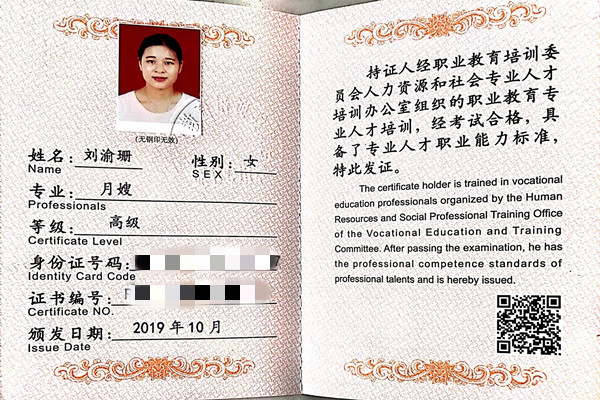 (无钢印无效)
姓名：刘渝珊
Name
性别：女
SEX
专业：月嫂
Professionals
等级：高级
Certificate Level
身份证号码：
Identity Card Code
证书编号：
Certificate NO.
颁发日期：2019年10月
Issue Date
持证人经职业教育培训委
员会人力资源和社会专业人才
培训办公室组织的职业教育专
业人才培训，经考试合格，具
备了专业人才职业能力标准，
特此发证。
The certificate holder is trained in vocational
education professionals organized by the Human
Resources and Social Professional Training Office
of the Vocational Education and Training
Committee. After passing the examination, he has
the professional competence standards of
professional talents and is hereby issued.